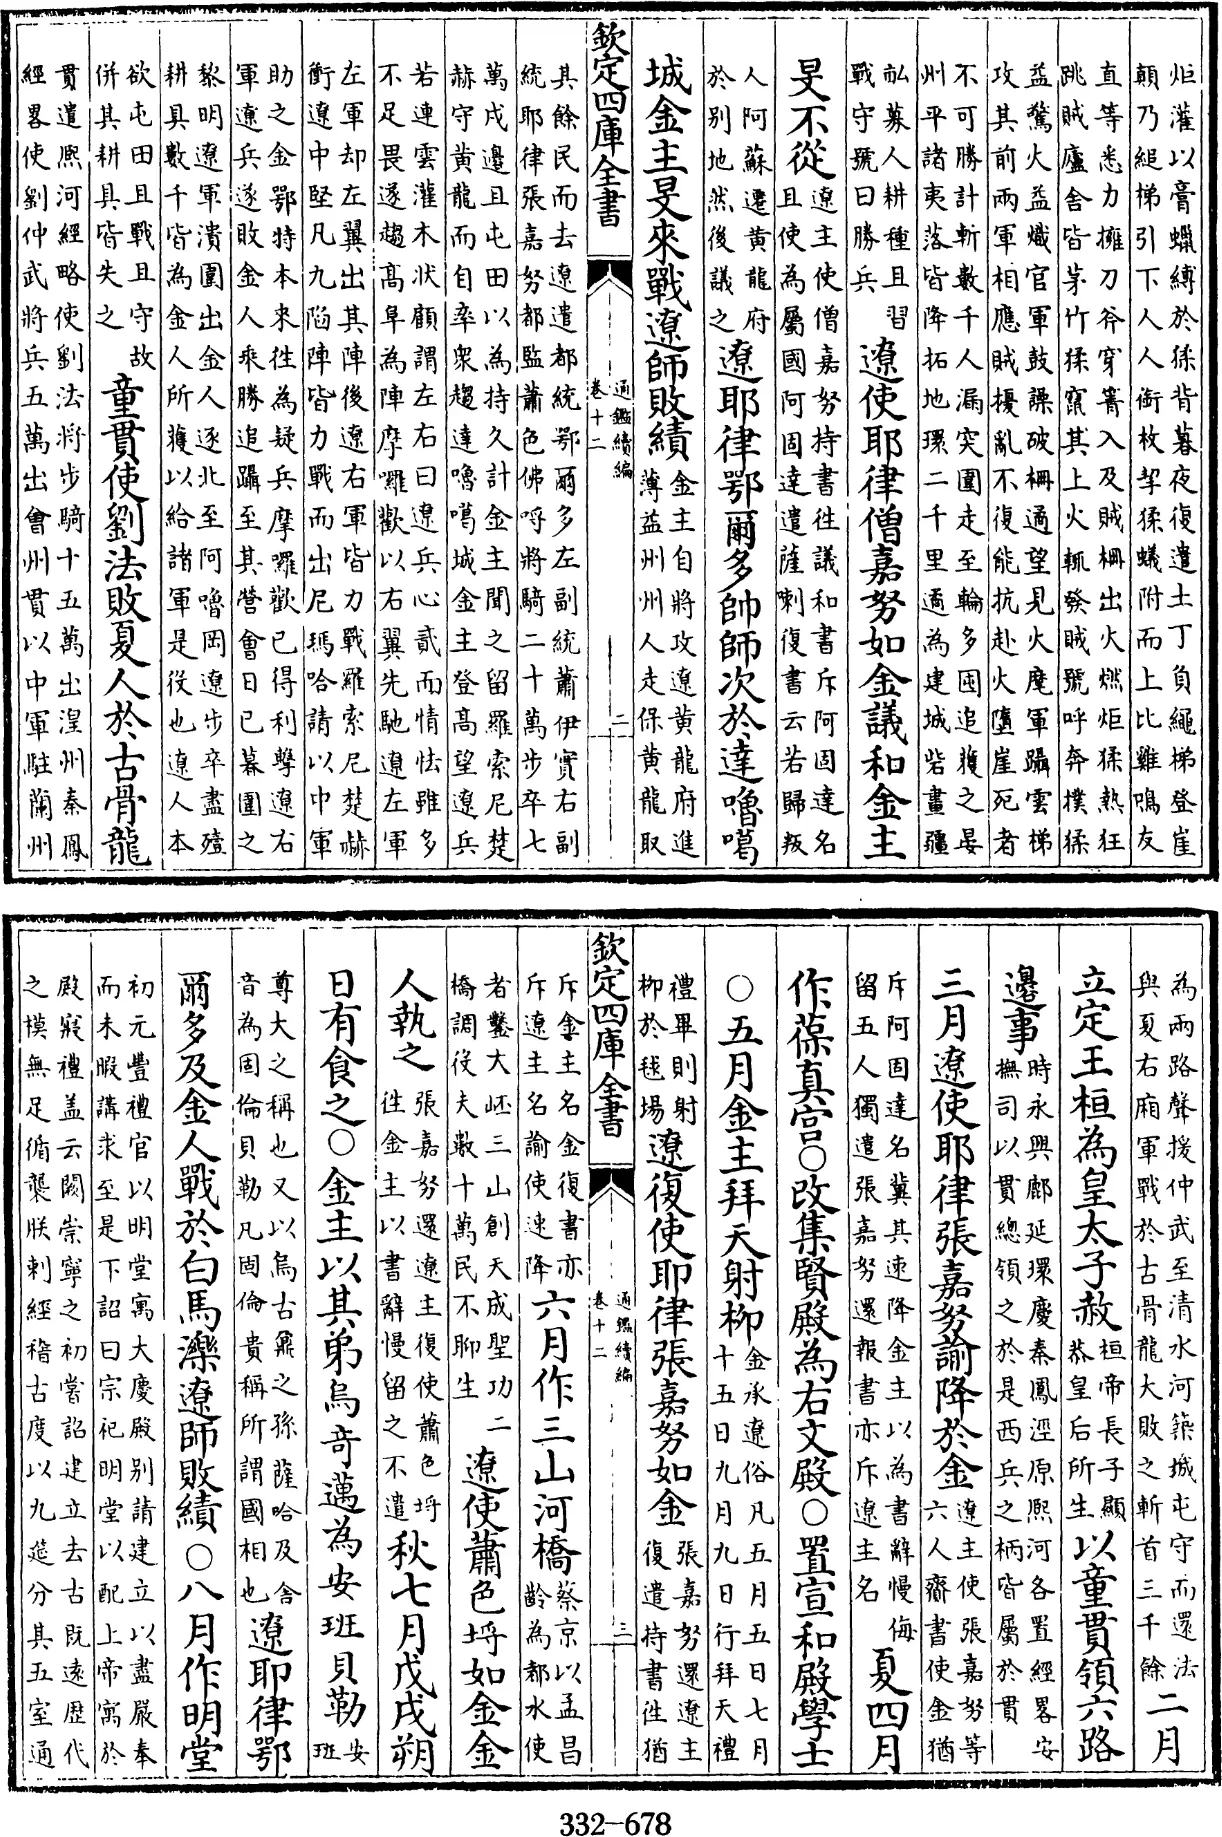 炬灌以膏蠟縛於猱背暮夜復遣土丁負繩梯登崖
顛乃縋梯引下人人銜枚挈猱蟻附而上比雞鳴友
直等悉力擁刀斧穿箐入及賊柵出火燃炬猱熱狂
跳賊廬舍皆茅竹猱竄其上火輒發賊號呼奔撲猱
益驚火益熾官軍鼓譟破柵遹望見火麾軍躡雲梯
攻其前兩軍相應賊擾亂不復能抗赴火墮崖死者
不可勝計斬數千人漏突圍走至輪多囤追獲之晏
州平諸夷落皆降拓地環二千里遹為建城砦畫疆
畝募人耕種且習
戰守號曰勝兵
遼使耶律僧嘉努如金議和金主
旻不從
遼主使僧嘉努持書徃議和書斥阿固達名
且使為屬國阿固達遣薩喇復書云若歸叛
人阿蘇遷黃龍府
於別地然後議之
遼耶律鄂爾多帥師次於達嚕噶
城金主旻來戰遼師敗績
金主自將攻遼黃龍府進
薄益州州人走保黃龍取
欽定四庫全書
通鑑續編
卷十二
二
其餘民而去遼遣都統鄂爾多左副統蕭伊實右副
統耶律張嘉努都監蕭色佛埒將騎二十萬步卒七
萬戍邊且屯田以為持久計金主聞之留羅索尼楚
赫守黃龍而自率衆趨達嚕噶城金主登高望遼兵
若連雲灌木狀顧謂左右曰遼兵心貳而情怯雖多
不足畏遂趨高阜為陣摩囉歡以右翼先馳遼左軍
左軍却左翼出其陣後遼右軍皆力戰羅索尼楚赫
衝遼中堅凡九陷陣皆力戰而出尼瑪哈請以中軍
助之金鄂特本來徃為疑兵摩囉歡已得利擊遼右
軍遼兵遂敗金人乘勝追躡至其營會日已暮圍之
黎明遼軍潰圍出金人逐北至阿嚕岡遼步卒盡殪
耕具數千皆為金人所獲以給諸軍是役也遼人本
欲屯田且戰且守故
併其耕具皆失之
童貫使劉法敗夏人於古骨龍
貫遣熈河經略使劉法將步騎十五萬出湟州秦鳳
經畧使劉仲武將兵五萬出會州貫以中軍駐蘭州
為兩路聲援仲武至清水河築城屯守而還法
與夏右廂軍戰於古骨龍大敗之斬首三千餘
二月
立定王桓為皇太子赦
桓帝長子顯
恭皇后所生
以童貫領六路
邊事
時永興鄜延環慶秦鳳涇原熈河各置經畧安
撫司以貫總領之於是西兵之柄皆屬於貫
三月遼使耶律張嘉努諭降於金
遼主使張嘉努等
六人齎書使金猶
斥阿固達名兾其速降金主以為書辭慢侮
留五人獨遣張嘉努還報書亦斥遼主名
夏四月
作葆真宮〇改集賢殿為右文殿〇置宣和殿學士
〇五月金主拜天射柳
金承遼俗凡五月五日七月
十五日九月九日行拜天禮
禮畢則射
柳於毬場
遼復使耶律張嘉努如金
張嘉努還遼主
復遣持書徃猶
欽定四庫全書
通鑑續編
卷十二
三
斥金主名金復書亦
斥遼主名諭使速降
六月作三山河橋
蔡京以孟昌
齡為都水使
者鑿大伾三山創天成聖功二
橋調役夫數十萬民不聊生
遼使蕭色埒如金金
人執之
張嘉努還遼主復使蕭色埒
徃金主以書辭慢留之不遣
秋七月戊戌朔
日有食之〇金主以其弟烏奇邁為安班貝勒
安
班
尊大之稱也又以烏古鼐之孫薩哈及舍
音為固倫貝勒凡固倫貴稱所謂國相也
遼耶律鄂
爾多及金人戰於白馬濼遼師敗績〇八月作明堂
初元豐禮官以明堂寓大慶殿别請建立以盡嚴奉
而未暇講求至是下詔曰宗祀明堂以配上帝寓於
殿寢禮盖云闕崇寧之初嘗詔建立去古既遠歴代
之模無足循襲朕刺經稽古度以九筵分其五室通
332-678